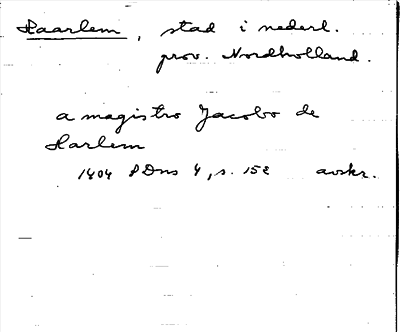 Haarlem, stad i nederl.
prov. Nordholland.
a magistro Jacobo de
Harlem
1404 PDns 4, s. 152 avskr.